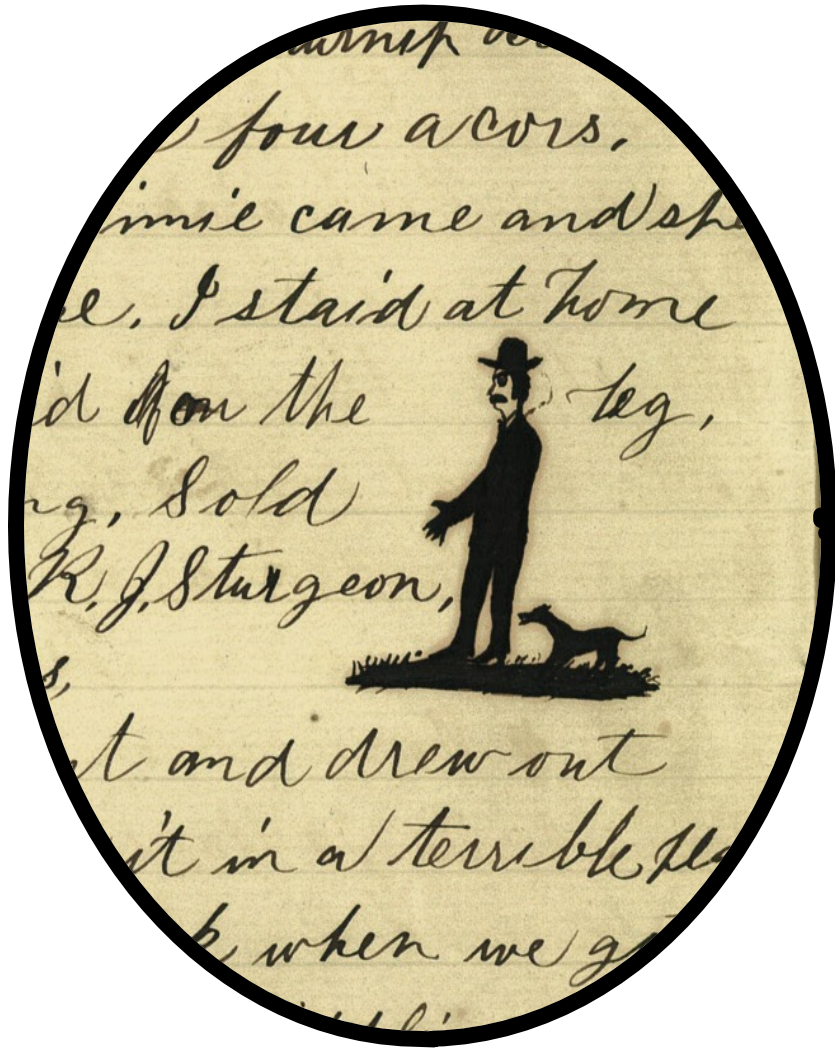 turnip
four acors.
came and
I staid at home
the leg,
Sold
R. J. Sturgeon,
s,
and drew out
it in a terrible
when we